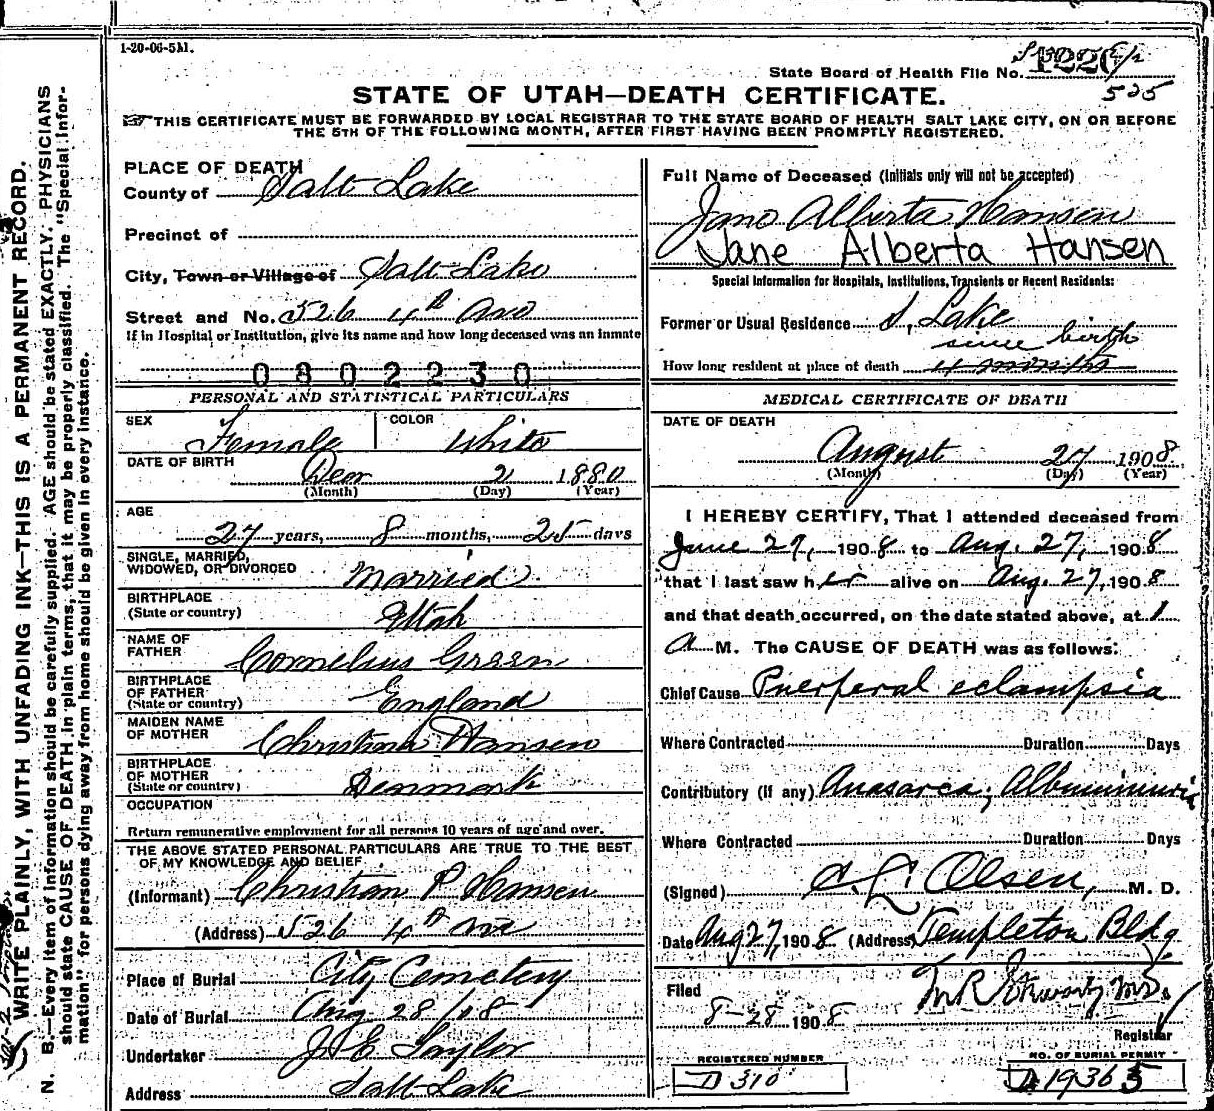 1-20-06-5M.
State Board of Health File No.
525
STATE OF UTAH—DEATH CERTIFICATE.
THIS CERTIFICATE MUST BE FORWARDED BY LOCAL REGISTRAR TO THE STATE BOARD OF HEALTH SALT LAKE CITY, ON OR BEFORE
THE 5TH OF THE FOLLOWING MONTH, AFTER FIRST HAVING BEEN PROMPTLY REGISTERED.
WRITE PLAINLY, WITH UNFADING INK—THIS IS A PERMANENT RECORD.
N. B.—Every item of information should be carefully supplied. AGE should be stated EXACTLY. PHYSICIANS
should state CAUSE OF DEATH in plain terms, that it may be properly classified. The "Special Infor-
mation" for persons dying away from home should be given in every instance.
PLACE OF DEATH
County of Salt Lake
Precinct of
City, Town or Village of Salt Lake
Street and No. 526 4th Ave
If in Hospital or Institution, give its name and how long deceased was an inmate
0802230
PERSONAL AND STATISTICAL PARTICULARS
SEX Female COLOR White
DATE OF BIRTH Dec 2 1880
(Month) (Day) (Year)
AGE
27 years, 8 months, 25 days
SINGLE, MARRIED,
WIDOWED, OR DIVORCED Married
BIRTHPLACE
(State or country) Utah
NAME OF
FATHER Cornelius Green
BIRTHPLACE
OF FATHER
(State or country) England
MAIDEN NAME
OF MOTHER Christiana Hansen
BIRTHPLACE
OF MOTHER
(State or country) Denmark
OCCUPATION
Return remunerative employment for all persons 10 years of age and over.
THE ABOVE STATED PERSONAL PARTICULARS ARE TRUE TO THE BEST
OF MY KNOWLEDGE AND BELIEF
(Informant) Christian P Hansen
(Address) 526 4th Ave
Place of Burial City Cemetery
Date of Burial Aug 28/08
Undertaker J E Taylor
Address Salt Lake
Full Name of Deceased (Initials only will not be accepted)
Jane Alberta Hansen
Jane Alberta Hansen
Special Information for Hospitals, Institutions, Transients or Recent Residents:
Former or Usual Residence S. Lake
since birth
How long resident at place of death 4 months
MEDICAL CERTIFICATE OF DEATH
DATE OF DEATH
August 27 1908
(Month) (Day) (Year)
I HEREBY CERTIFY, That I attended deceased from
June 29, 1908 to Aug. 27, 1908
that I last saw her alive on Aug. 27, 1908
and that death occurred, on the date stated above, at 1
A M. The CAUSE OF DEATH was as follows:
Chief Cause Puerperal eclampsia
Where Contracted Duration Days
Contributory (If any) Anasarca; Albuminuria
Where Contracted Duration Days
(Signed) C. L. Olsen, M. D.
Date Aug 27, 1908 (Address) Templeton Bldg
Filed
8-28 1908
Registrar
REGISTERED NUMBER
D 310
NO. OF BURIAL PERMIT
D 19365